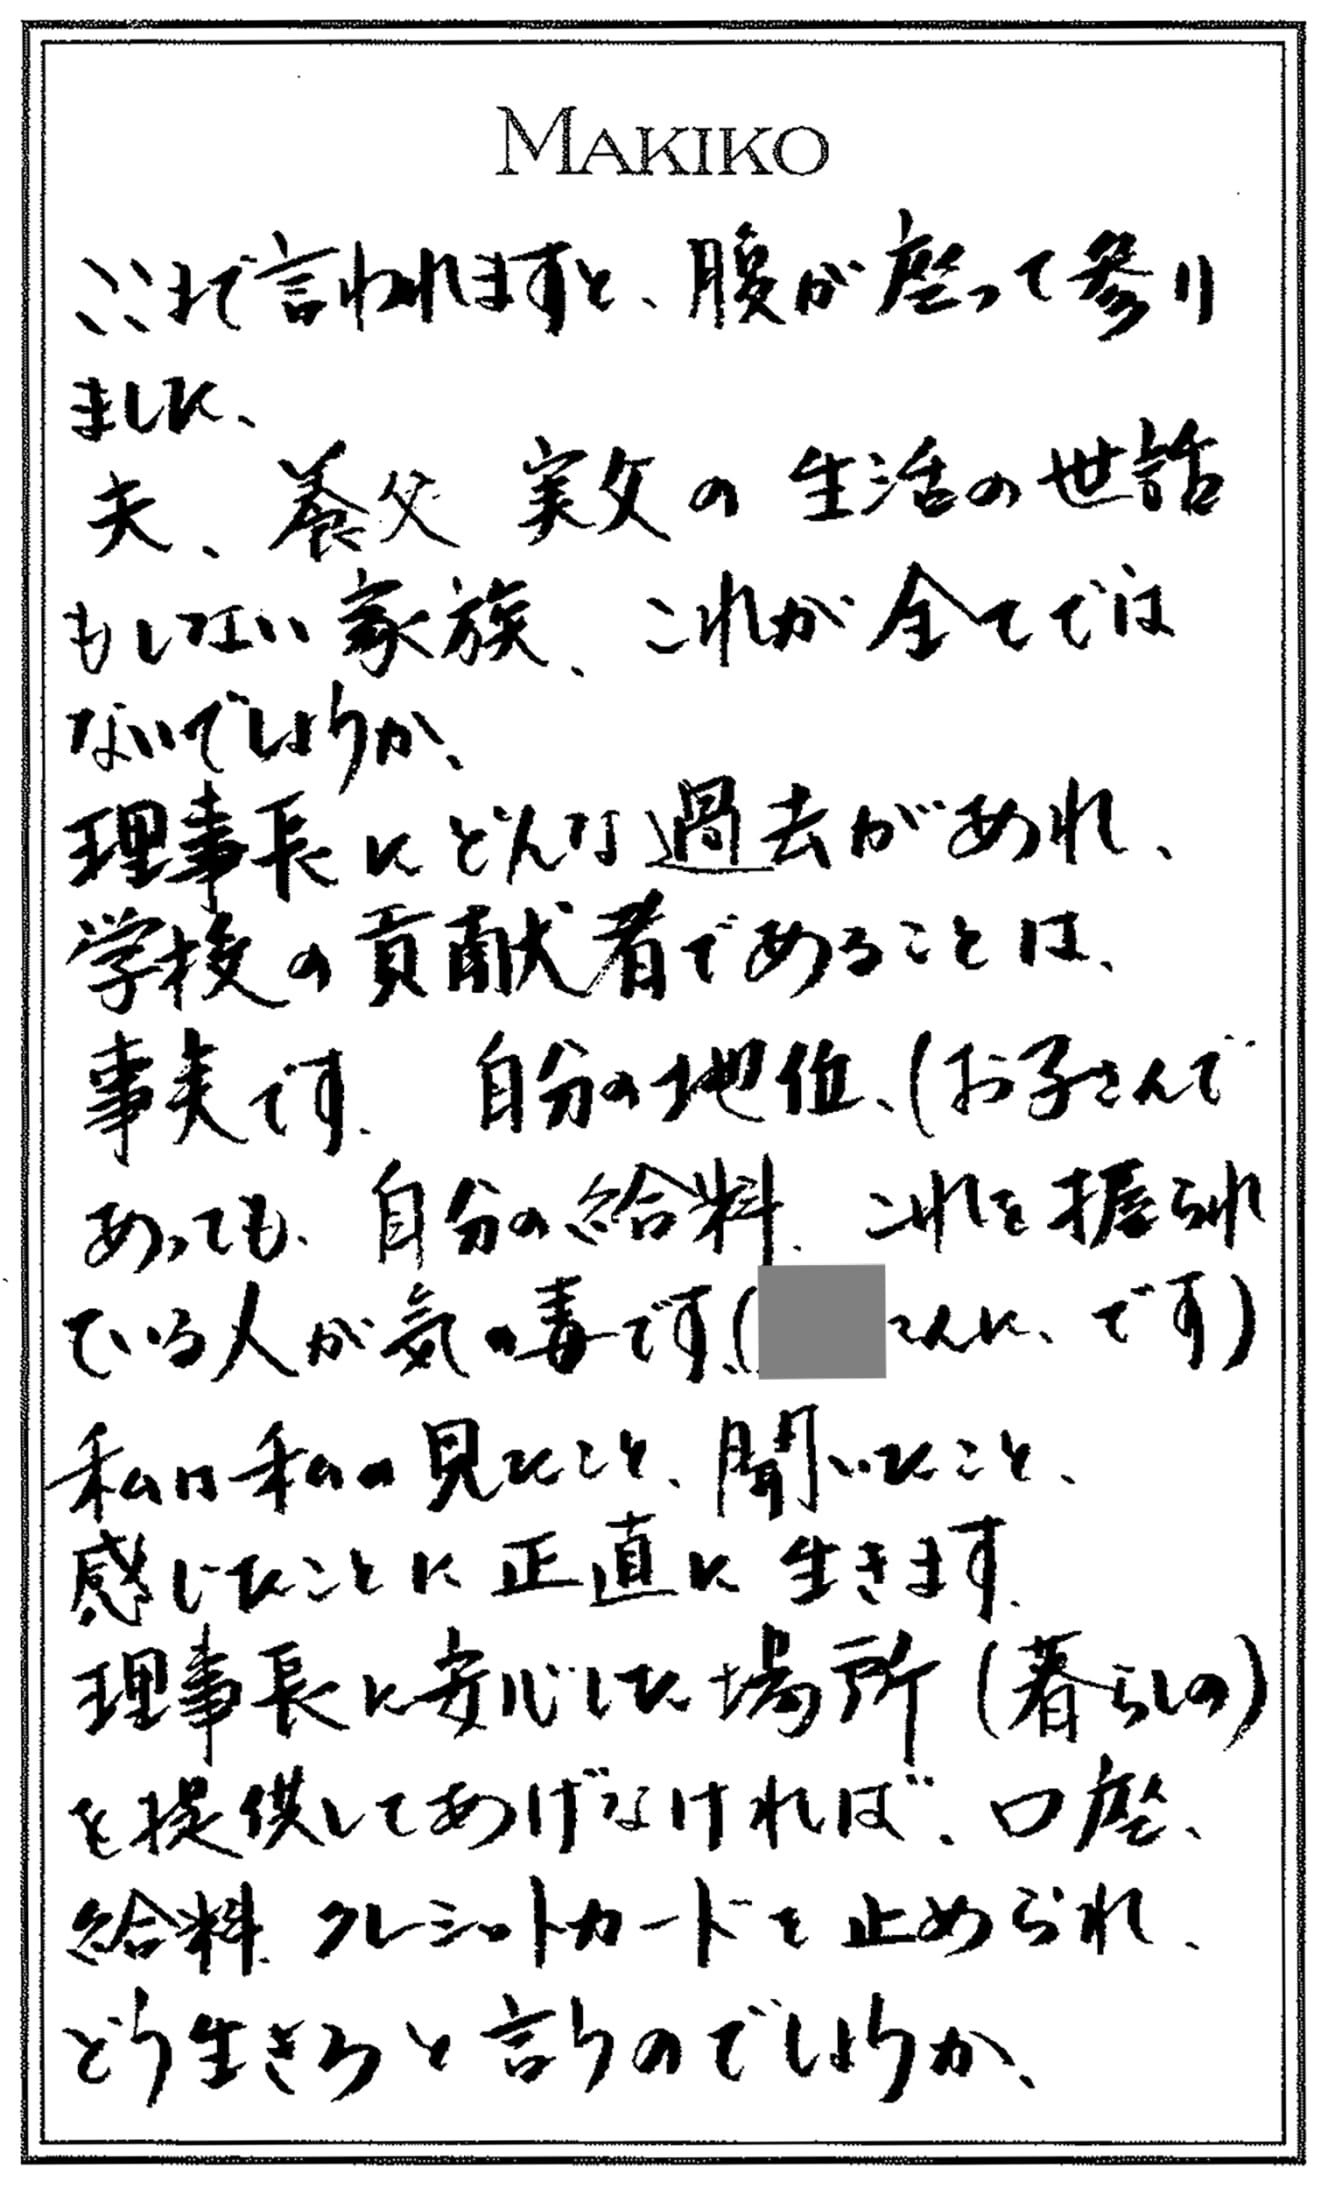 MAKIKO
ここまで言われますと、腹が座って参り
ました、
夫、養父 実父の生活の世話
もしない家族、これが全てでは
ないでしょうか、
理事長にどんな過去があれ、
学校の貢献者であることは、
事実です. 自分の地位、(お子さんで
あっても、自分の給料. これを握られ
ている人が気の毒です.( さんに、です)
私は私の見たこと、聞いたこと、
感じたことに正直に生きます.
理事長に安心した場所(暮らしの)
を提供してあげなければ、口座、
給料. クレジットカードを止められ、
どう生きろと言うのでしょうか、